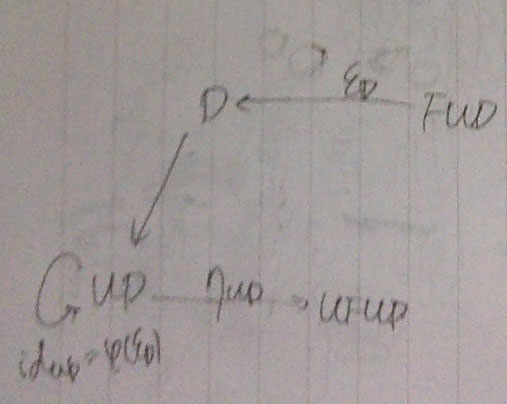 D ε_D FUD
UD η_UD UFUD
id_UD = φ(ε_D)